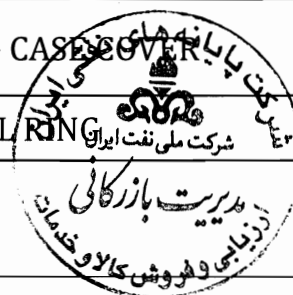 CASE COVER
L RING
شرکت پایانه های نفتی ایران
شرکت ملی نفت ایران
مدیریت بازرگانی
ارزیابی و فروش کالا و خدمات